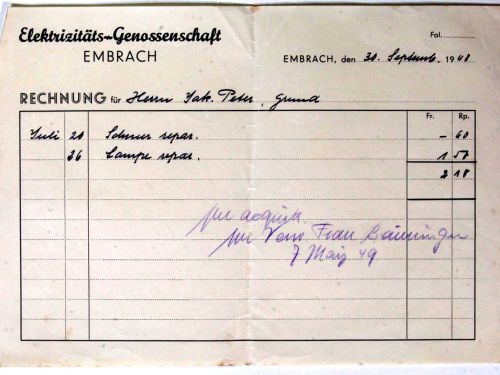 Elektrizitäts-Genossenschaft
EMBRACH
Fol.
EMBRACH, den 30. Septemb. 1948
RECHNUNG für Herrn Jak. Peter, Grund
Fr. Rp.
Juli 20 Schnur repar. – 60
26 Lampe repar. 1 50
2 10
per acquit.
Frau
7 März 49